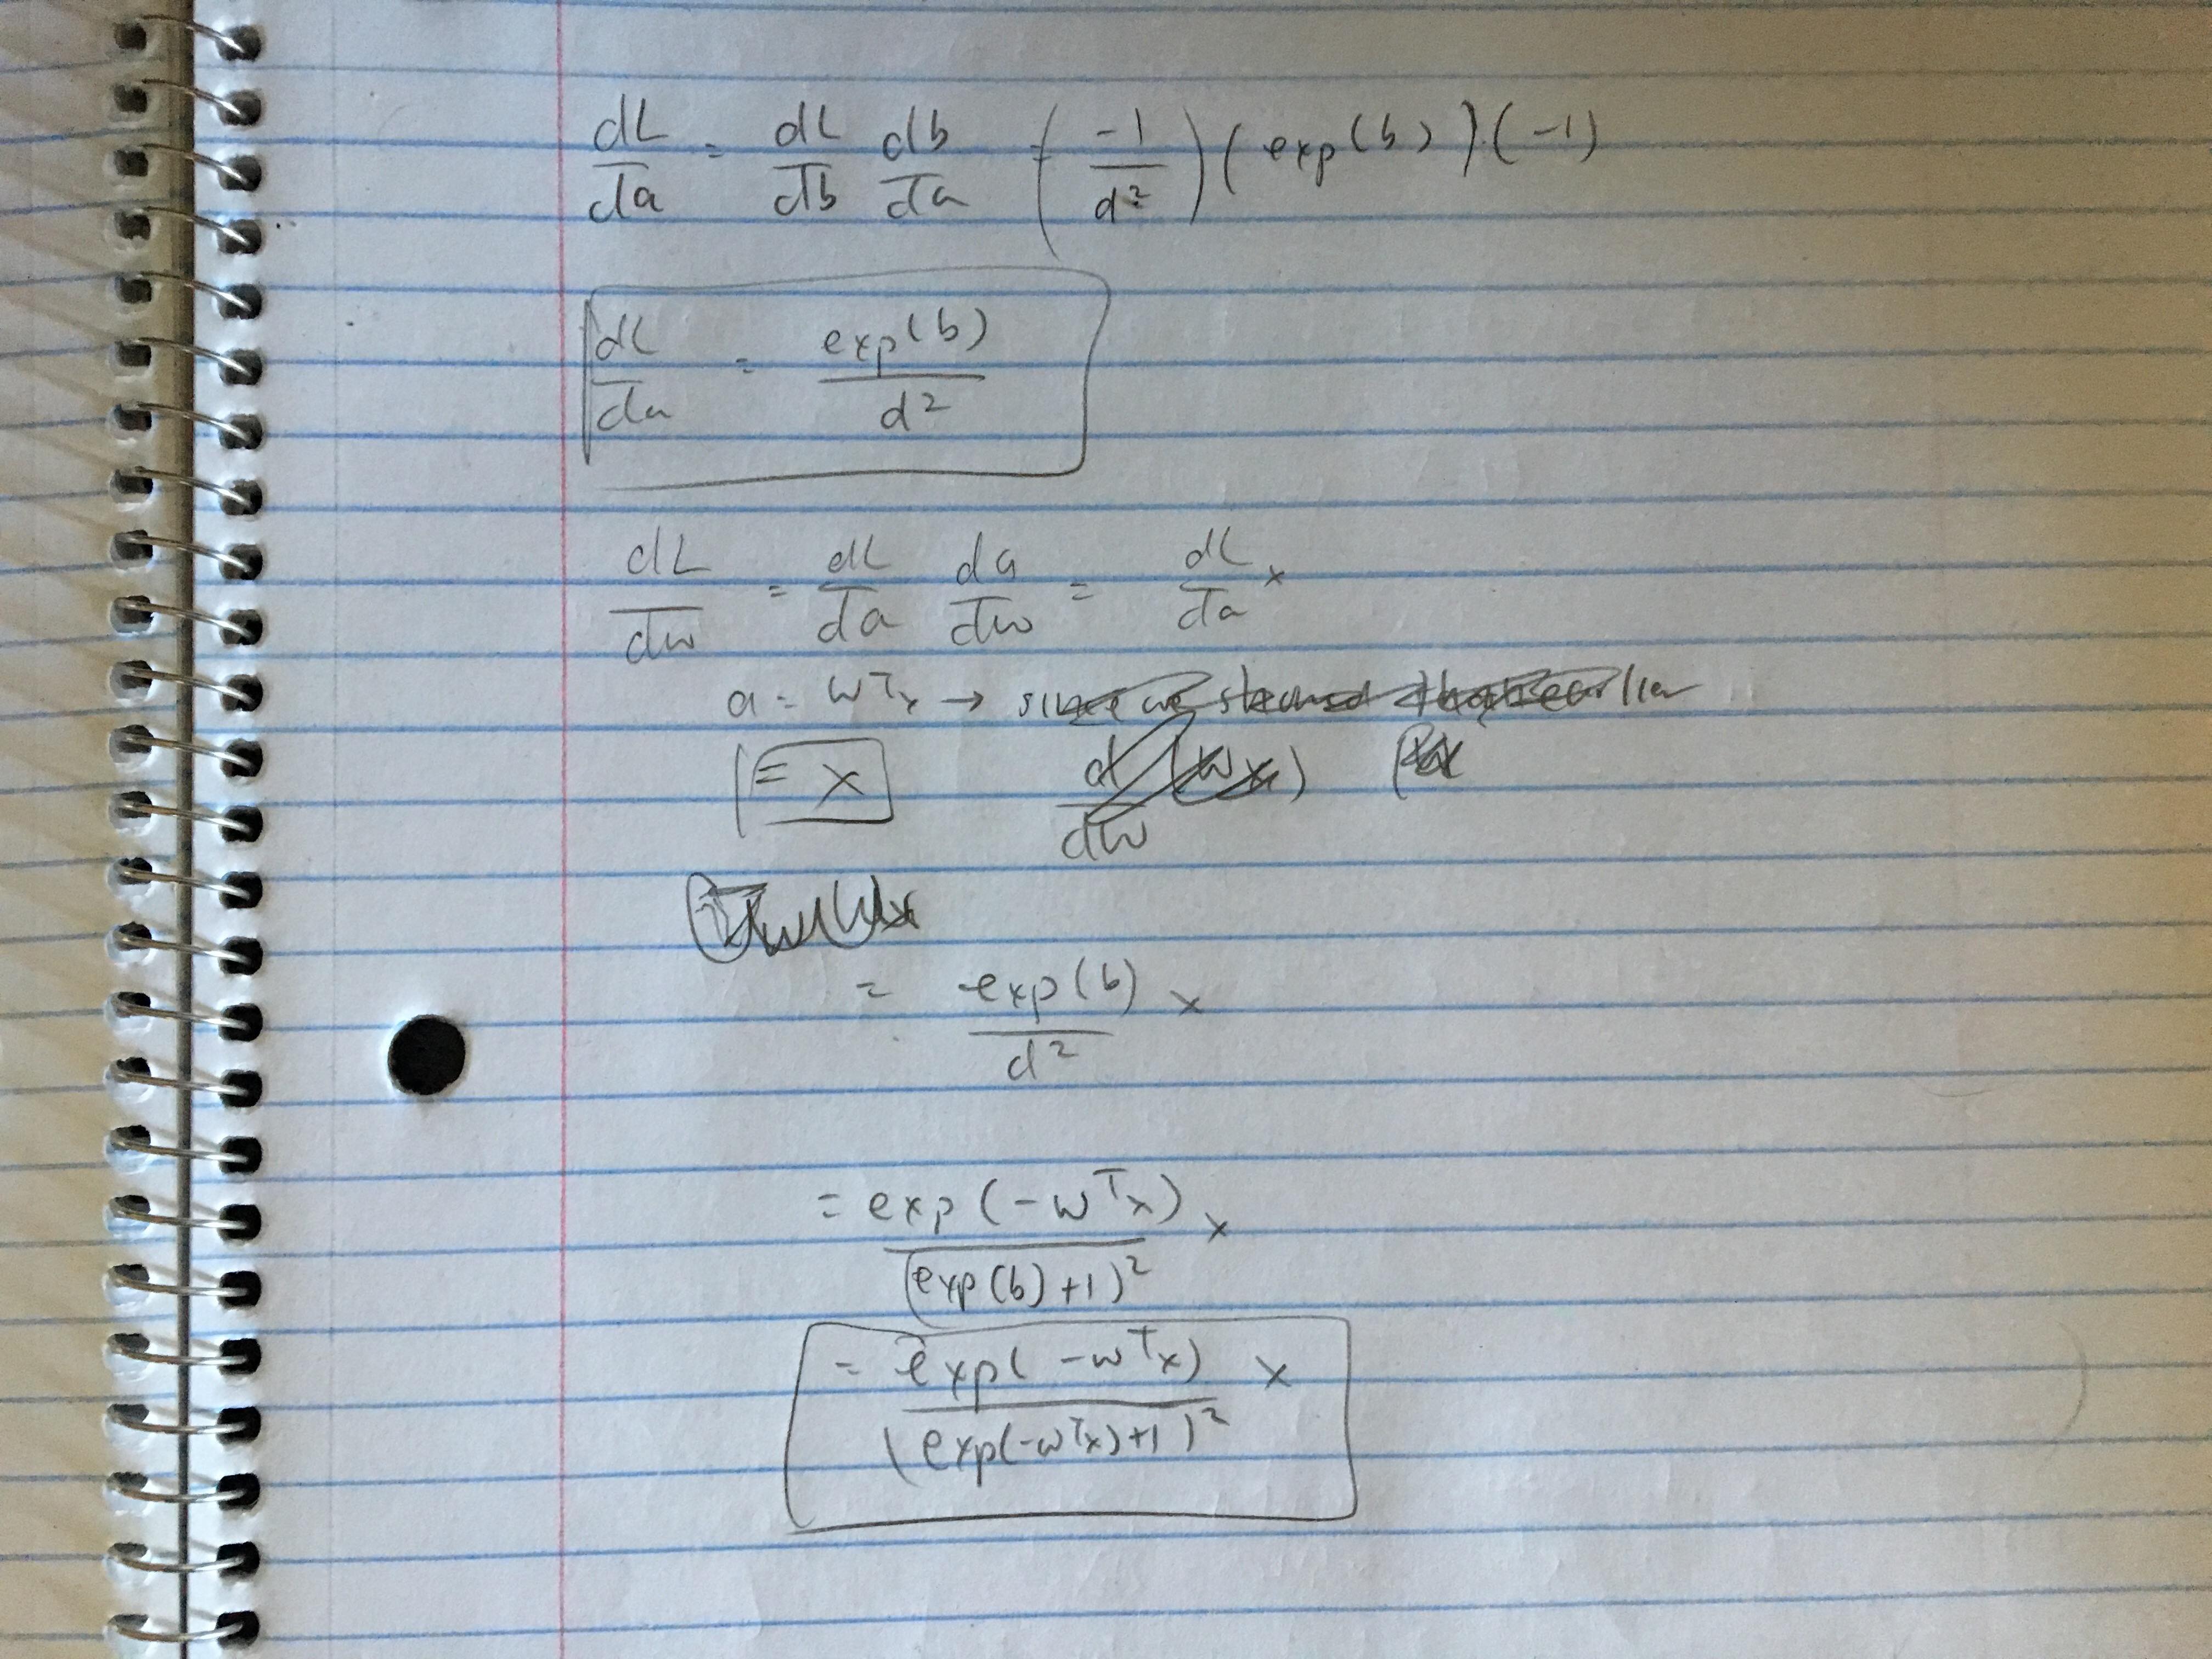 dL/da = dL/db db/da = (-1/d²)(exp(b))(-1)
dL/da = exp(b)/d²
dL/dw = dL/da da/dw = dL/da x
a = wᵀx → since we showed that earlier
= x d/dw (wx)
= exp(b)/d² x
= exp(-wᵀx)/(exp(b)+1)² x
= exp(-wᵀx)/(exp(-wᵀx)+1)² x